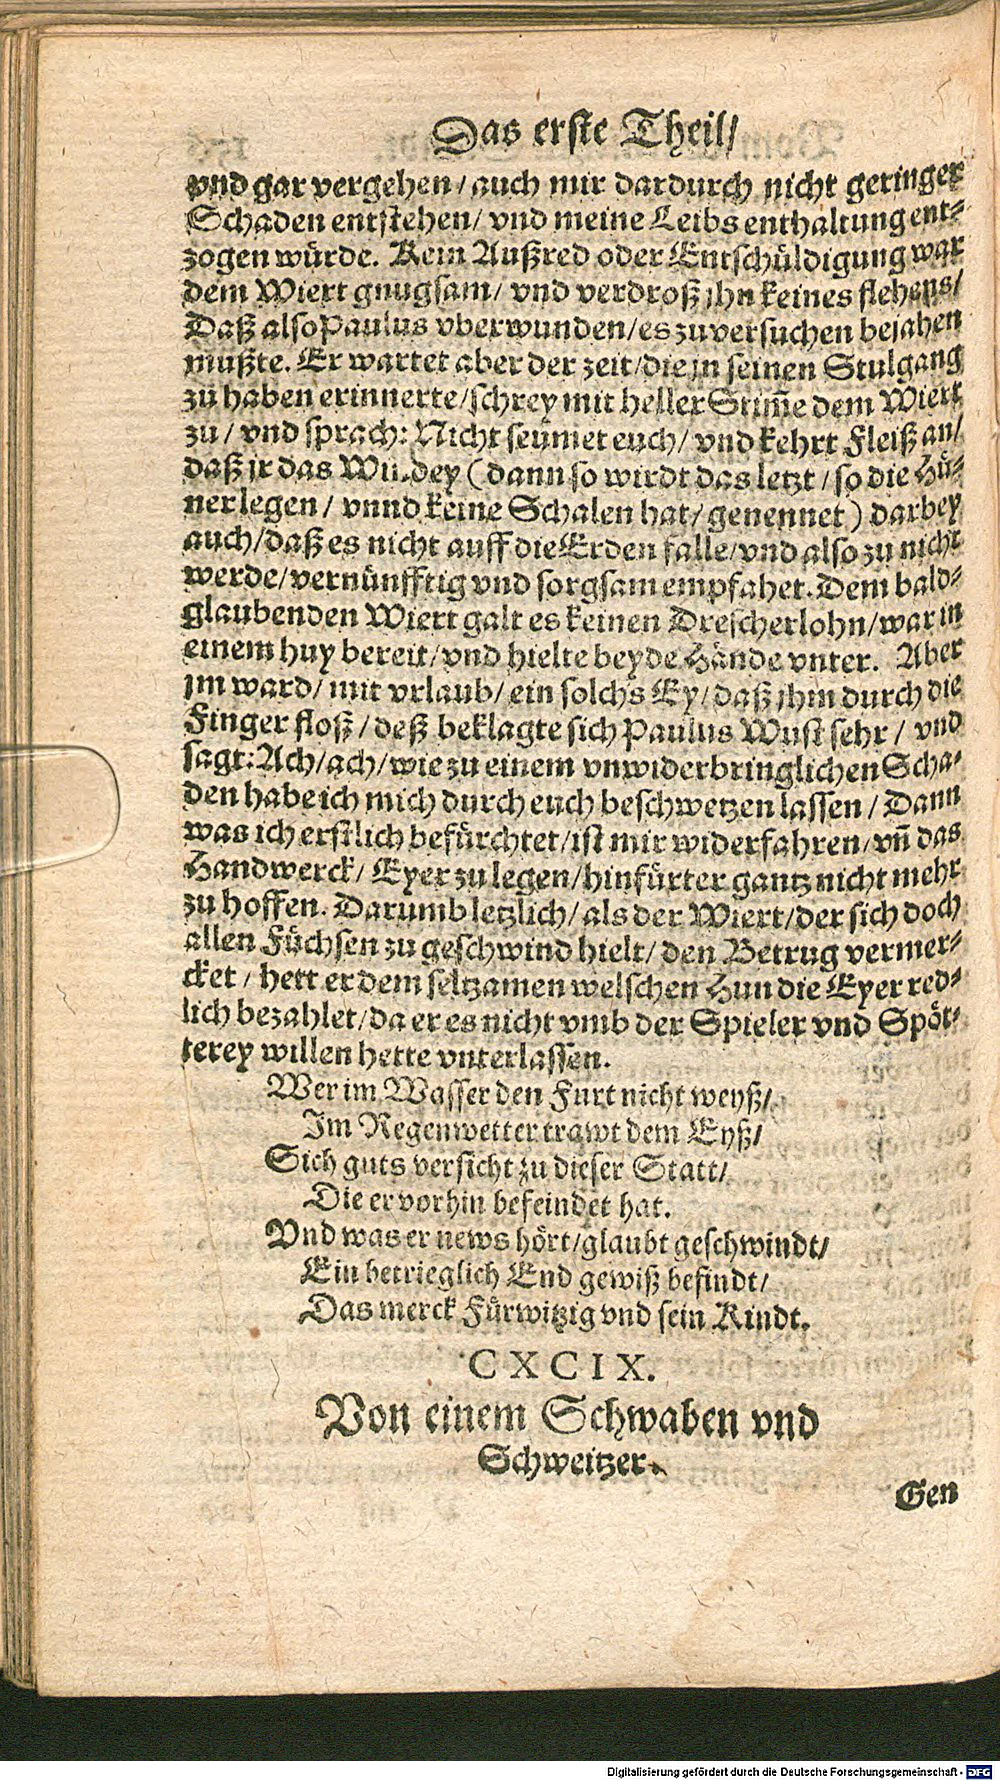 Das erste Theil/
vnd gar vergehen/ auch mir dardurch nicht geringer
Schaden entstehen/ vnd meine Leibs enthaltung ent-
zogen würde. Kein Außred oder Entschüldigung war
dem Wiert gnugsam/ vnd verdroß jhn keines flehens/
Daß also Paulus vberwunden/ es zu versuchen bejahen
mußte. Er wartet aber der zeit/ die jn seinen Stulgang
zu haben erinnerte/ schrey mit heller Stim̃e dem Wiert
zu/ vnd sprach: Nicht seumet euch/ vnd kehrt Fleiß an/
daß jr das Windey (dann so wirdt das letzt/ so die Hü-
ner legen/ vnnd keine Schalen hat/ genennet) darbey
auch/ daß es nicht auff die Erden falle/ vnd also zu nicht
werde/ vernünfftig vnd sorgsam empfahet. Dem bald-
glaubenden Wiert galt es keinen Drescherlohn/ war in
einem huy bereit/ vnd hielte beyde Hände vnter. Aber
jm ward/ mit vrlaub/ ein solchs Ey/ daß jhm durch die
Finger floß/ deß beklagte sich Paulus Wust sehr/ vnd
sagt: Ach/ ach/ wie zu einem vnwiderbringlichen Scha-
den habe ich mich durch euch beschwetzen lassen/ Dann
was ich erstlich befürchtet/ ist mir widerfahren/ vñ das
Handwerck/ Eyer zu legen/ hinfürter gantz nicht mehr
zu hoffen. Darumb letzlich/ als der Wiert/ der sich doch
allen Füchsen zu geschwind hielt/ den Betrug vermer-
cket/ hett er dem seltzamen welschen Hun die Eyer red-
lich bezahlet/ da er es nicht vmb der Spieler vnd Spöt-
terey willen hette vnterlassen.
Wer im Wasser den Furt nicht weyß/
Im Regenwetter trawt dem Eyß/
Sich guts versicht zu dieser Statt/
Die er vorhin befeindet hat.
Vnd was er news hört/ glaubt geschwindt/
Ein betrieglich End gewiß befindt/
Das merck Fürwitzig vnd sein Kindt.
CXCIX.
Von einem Schwaben vnd
Schweitzer.
Gen
Digitalisierung gefördert durch die Deutsche Forschungsgemeinschaft - DFG